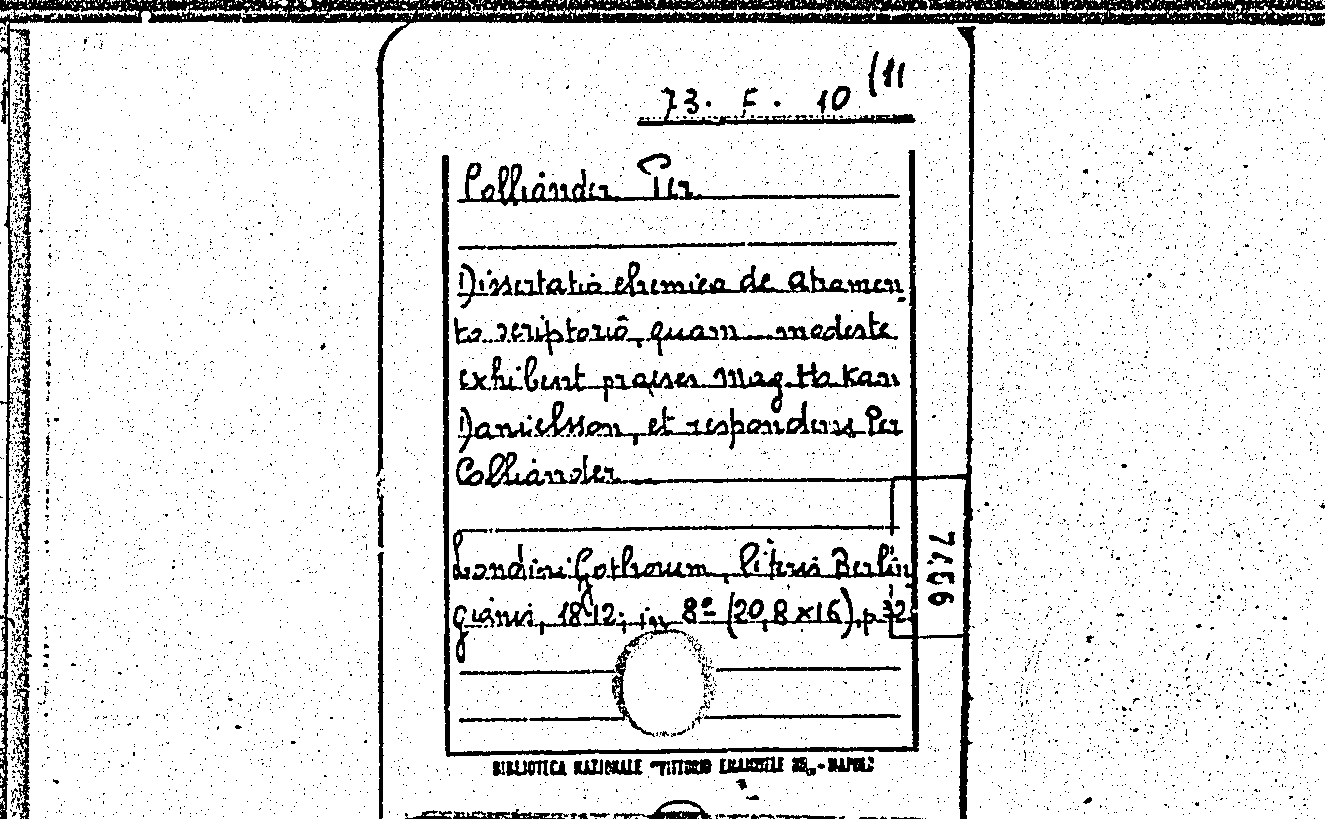 73. F. 10 (11
Colliander Per
Dissertatio chemica de atramen-
to scriptorio, quam modeste
exhibent praeses Mag. Hakan
Danielsson, et respondens Per
Colliander
Londini Gothorum, litteris Berlin
gianis, 1812; in 8º (20,8 x 16), p. 32.
7456
BIBLIOTECA NAZIONALE "VITTORIO EMANUELE III„ - NAPOLI